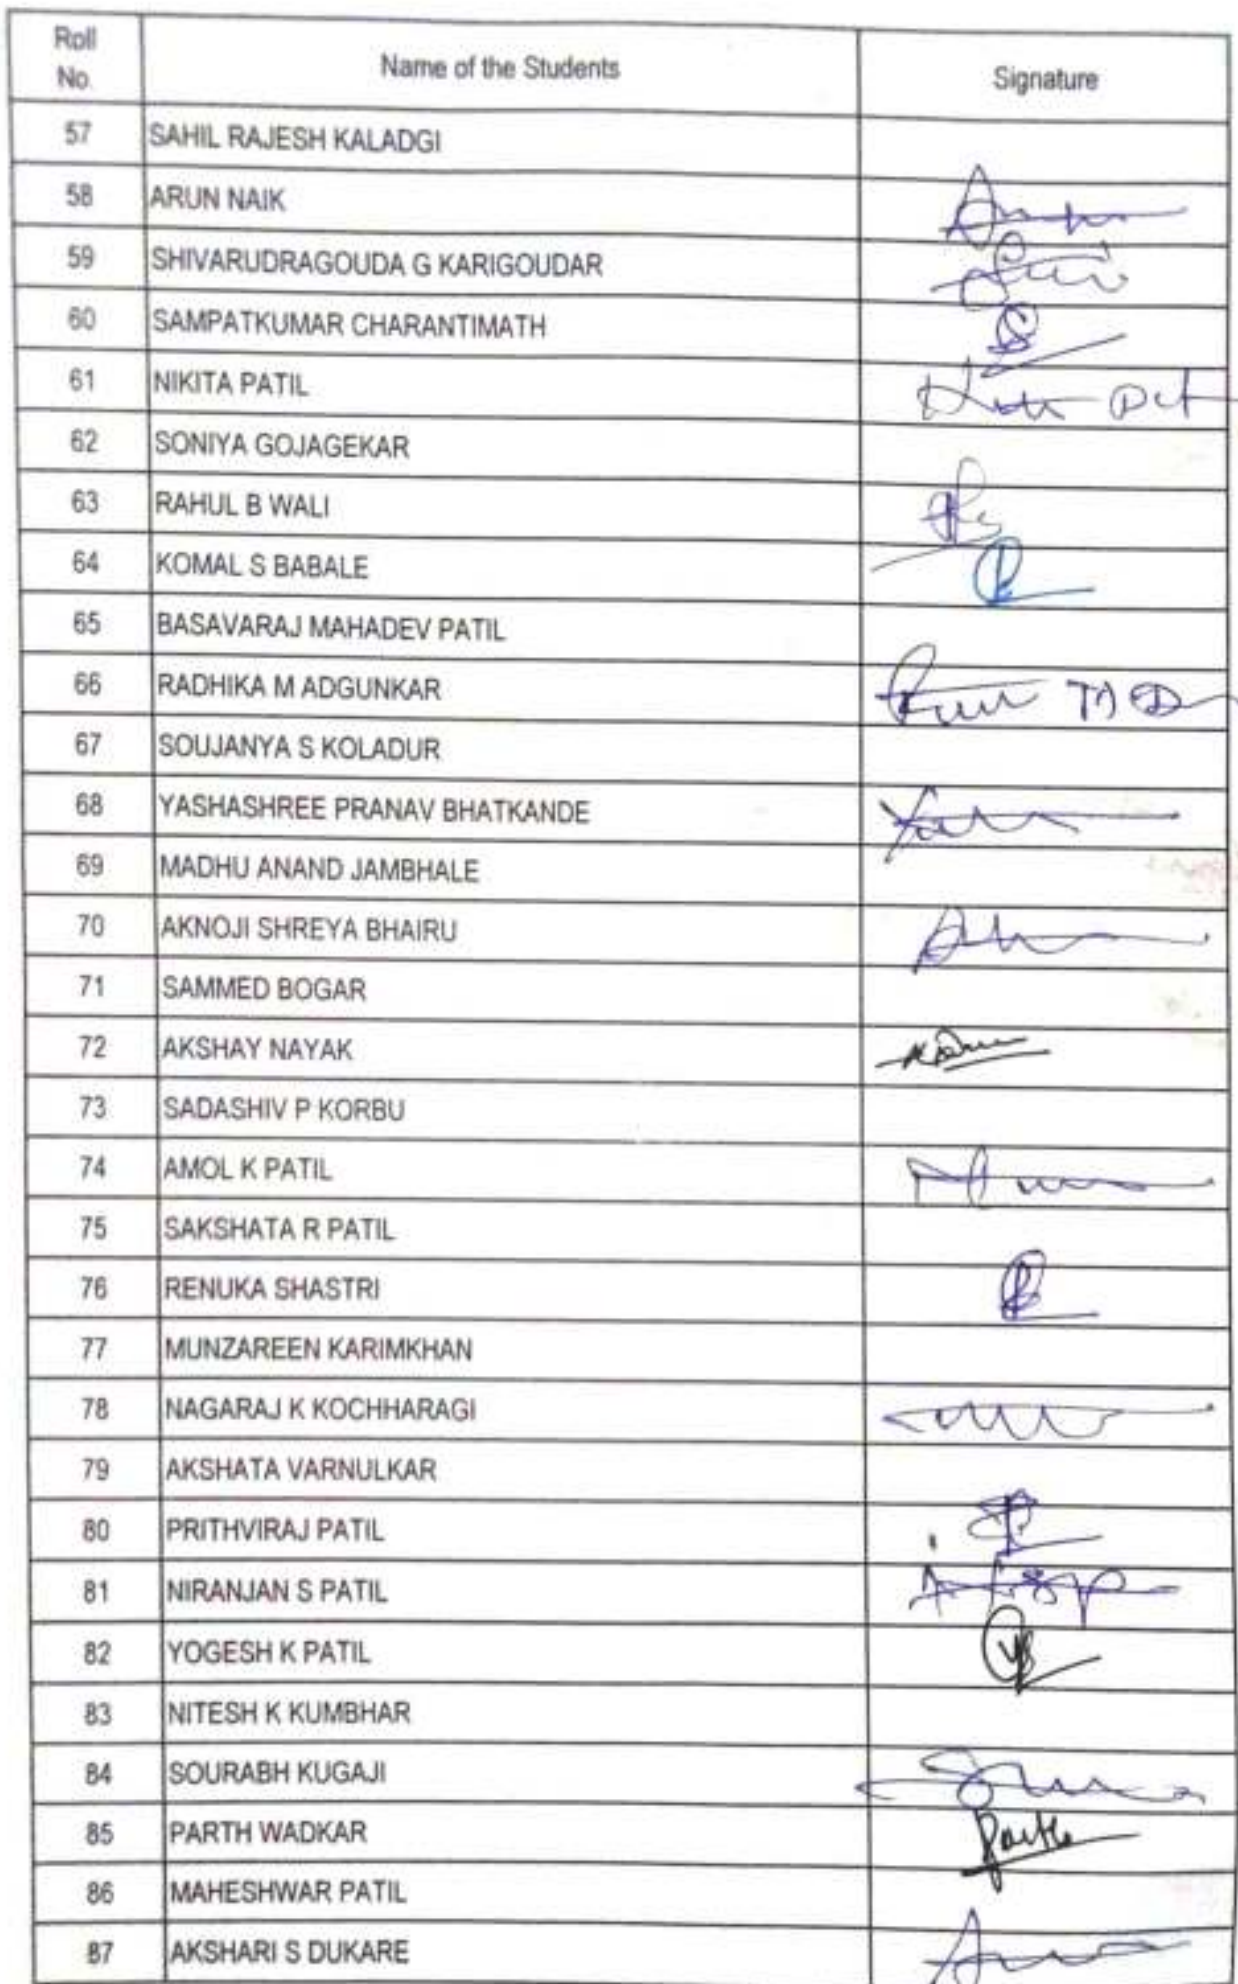 Roll No. Name of the Students Signature
57 SAHIL RAJESH KALADGI
58 ARUN NAIK
59 SHIVARUDRAGOUDA G KARIGOUDAR
60 SAMPATKUMAR CHARANTIMATH
61 NIKITA PATIL
62 SONIYA GOJAGEKAR
63 RAHUL B WALI
64 KOMAL S BABALE
65 BASAVARAJ MAHADEV PATIL
66 RADHIKA M ADGUNKAR
67 SOUJANYA S KOLADUR
68 YASHASHREE PRANAV BHATKANDE
69 MADHU ANAND JAMBHALE
70 AKNOJI SHREYA BHAIRU
71 SAMMED BOGAR
72 AKSHAY NAYAK
73 SADASHIV P KORBU
74 AMOL K PATIL
75 SAKSHATA R PATIL
76 RENUKA SHASTRI
77 MUNZAREEN KARIMKHAN
78 NAGARAJ K KOCHHARAGI
79 AKSHATA VARNULKAR
80 PRITHVIRAJ PATIL
81 NIRANJAN S PATIL
82 YOGESH K PATIL
83 NITESH K KUMBHAR
84 SOURABH KUGAJI
85 PARTH WADKAR Parth
86 MAHESHWAR PATIL
87 AKSHARI S DUKARE